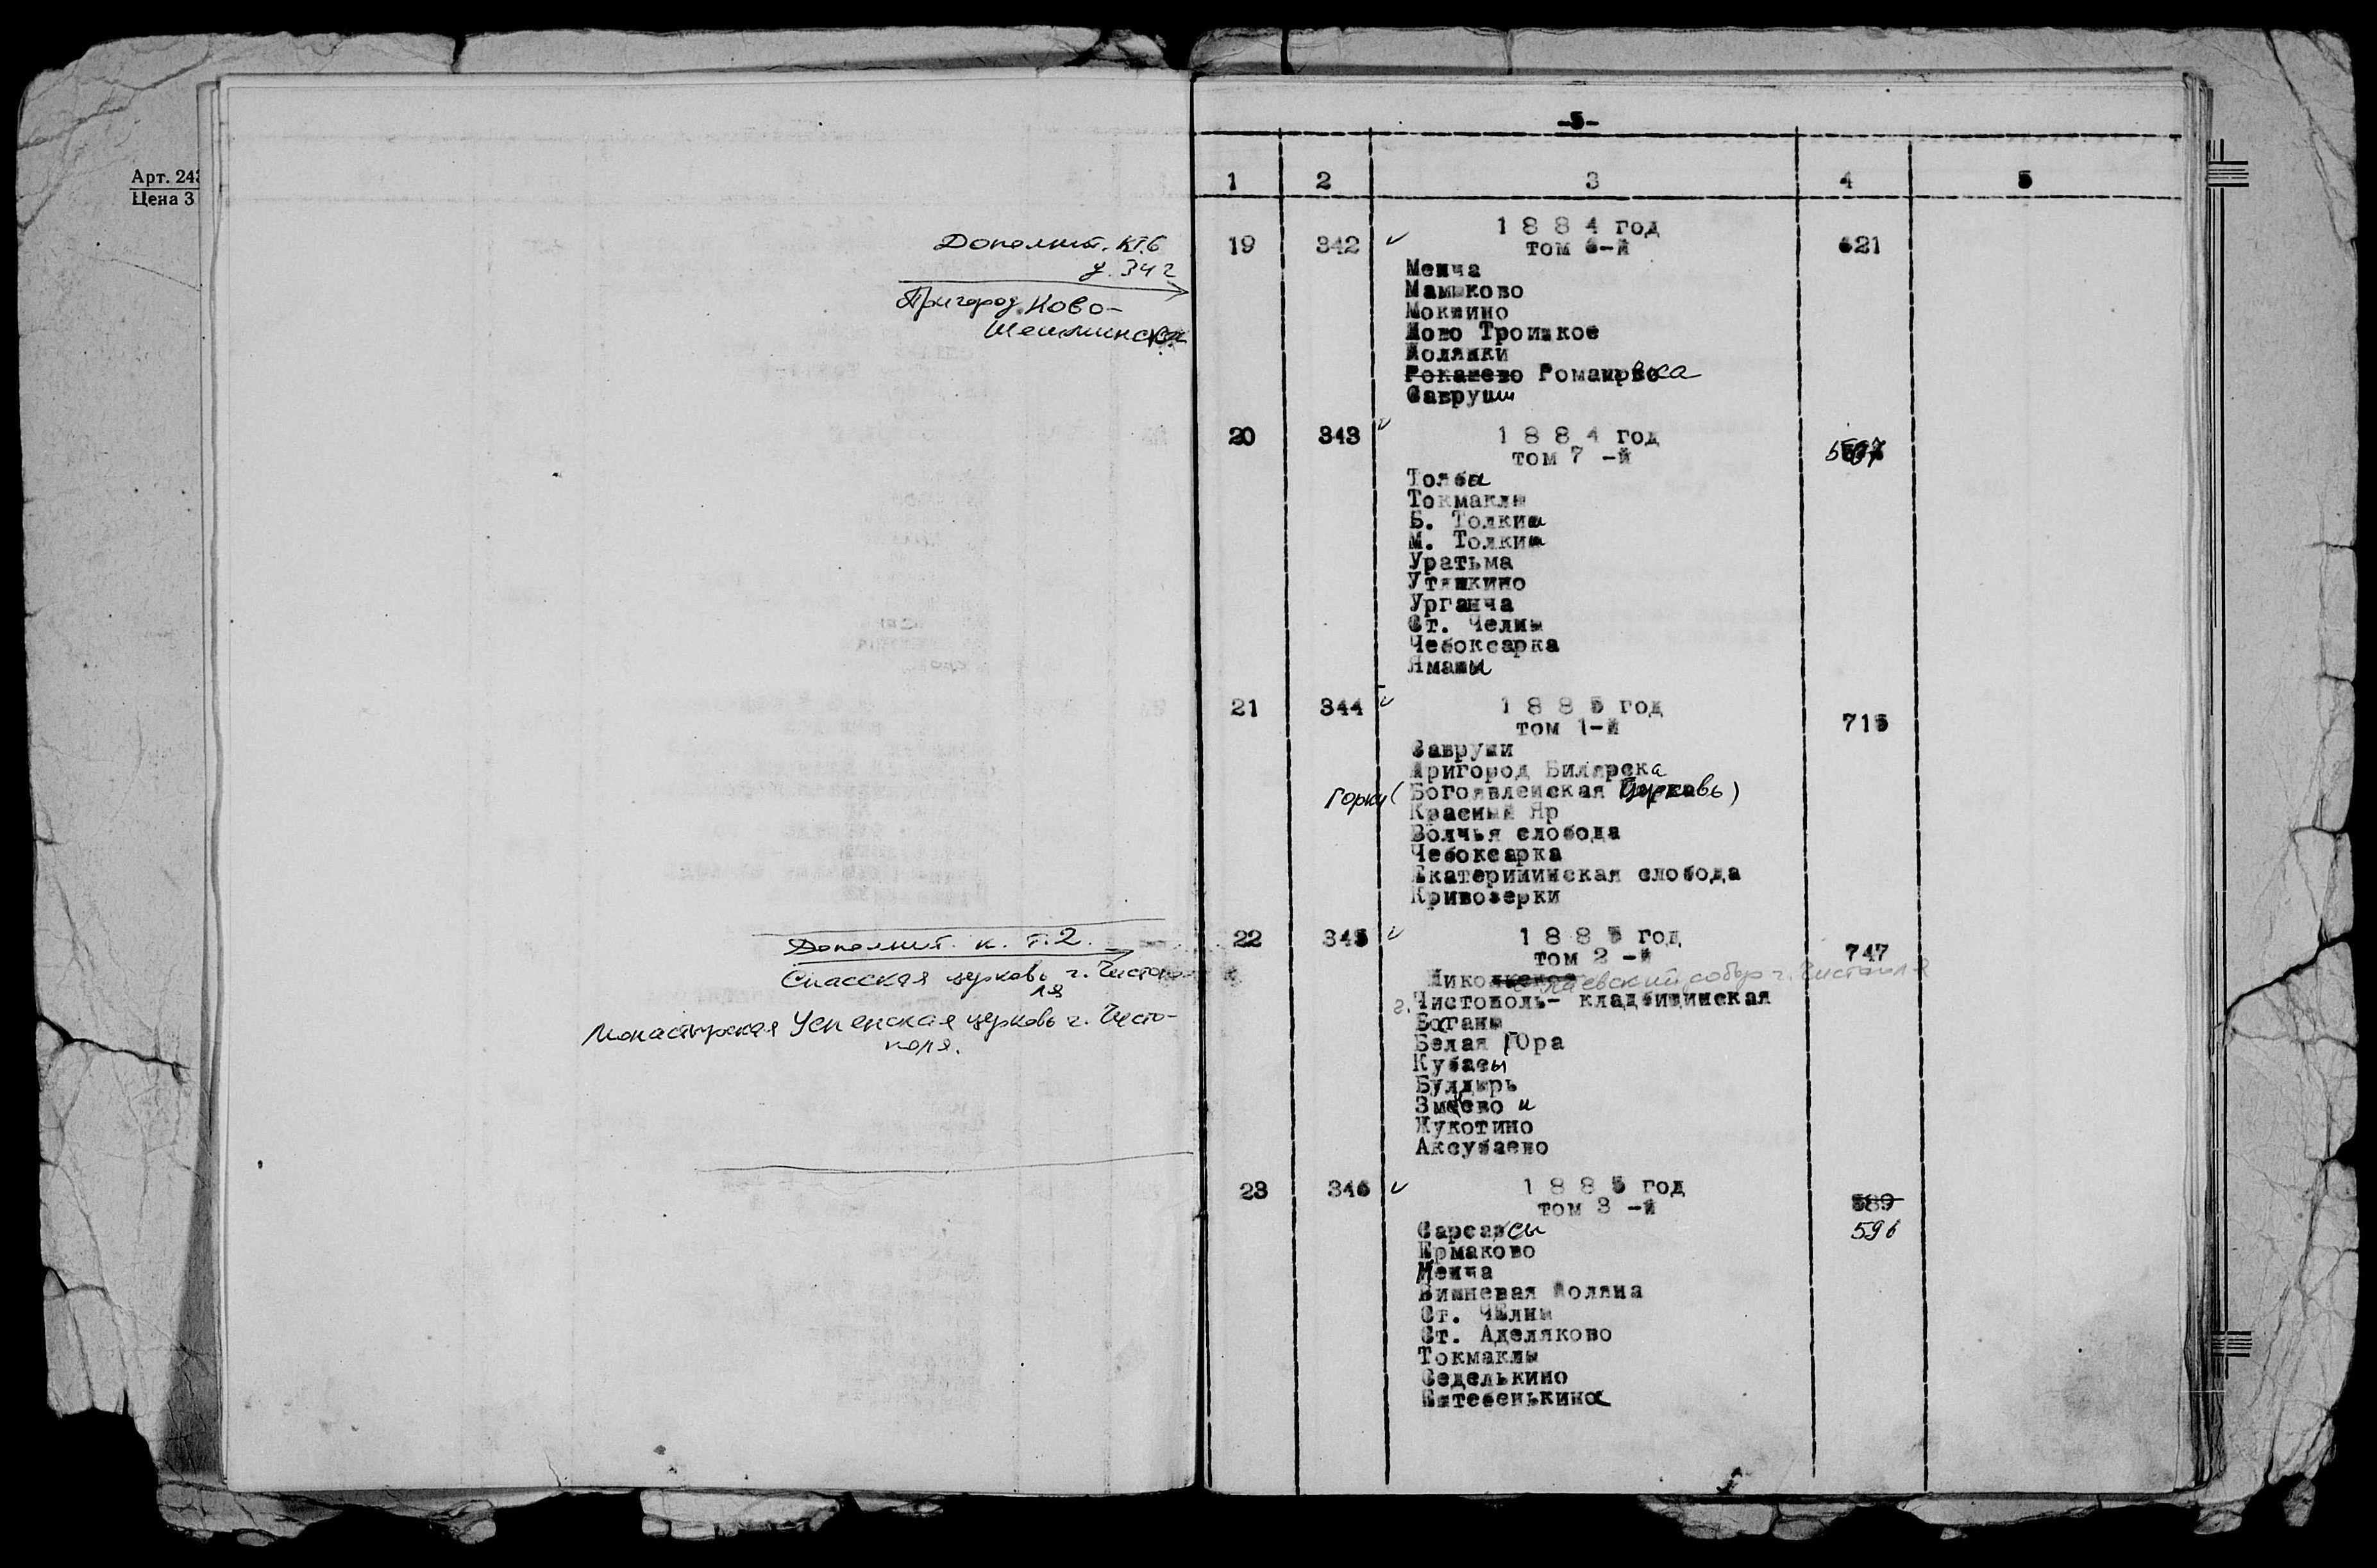 Арт. 243
Цена 3
Дополнит. кт.6
у. 342
Пригород Ново-
Шешминска
Дополнит. к. т.2.
Спасская церковь г. Чистопо-
ля
Монастырская Успенская церковь г. Чисто-
поля.
-5-
1 2 3 4 5
19 342 1884 год 621
том 6-й
Менча
Мамыково
Мокшино
Ново Троицкое
Полянки
Рокашево Романовка
Савруши
20 343 1884 год
том 7 -й
Толба
Токмаклы
Б. Толкиш
М. Толкиш
Уратьма
Утяшкино
Урганча
Ст. Челны
Чебоксарка
Ямаши
21 344 1885 год 715
том 1-й
Савруши
Пригород Билярска
Горки (Богоявленская Церковь)
Красный Яр
Волчья слобода
Чебоксарка
Екатерининская слобода
Кривозерки
22 345 1885 год 747
том 2 -й
Николаевский собор г. Чистополя
г. Чистополь- кладбищинская
Баганы
Белая Гора
Кубасы
Булдырь
Змеево и
Жукотино
Аксубаево
23 346 1885 год 589
том 3 -й
Сарсасы 596
Ермаково
Менча
Вишневая Поляна
Ст. ЧЕлны
Ст. Аделяково
Токмаклы
Седелькино
Ештебенькино